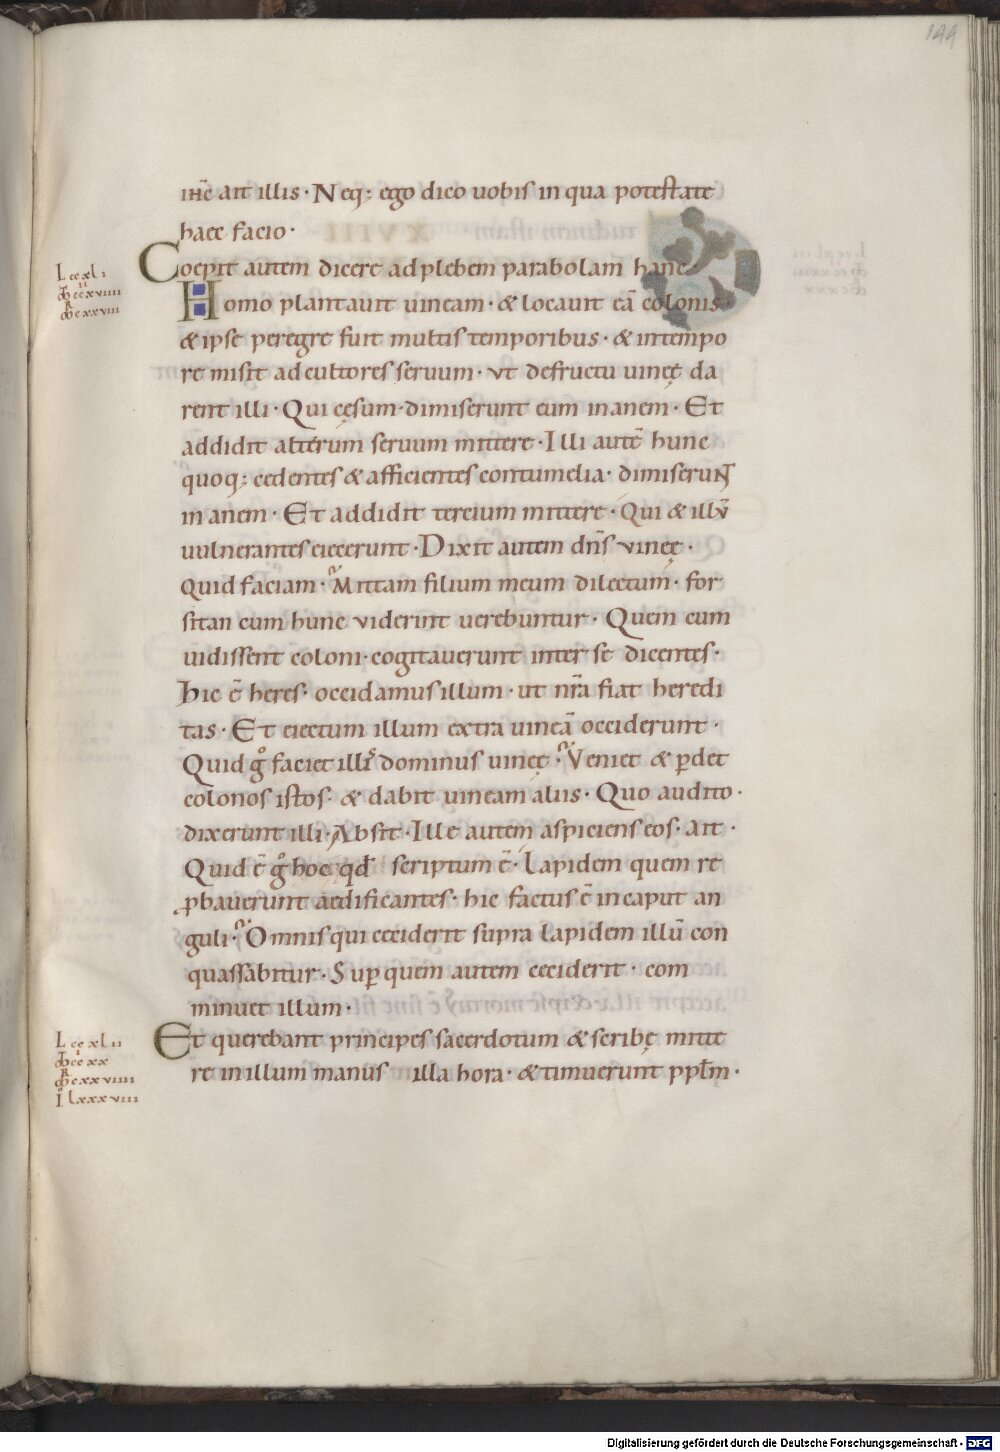 144
ihc̄ ait illis · Neq; ego dico uobis in qua potestate
haec facio ·
Coepit autem dicere ad plebem parabolam hanc
L ccxli
ccxviii
cxxviii
Homo plantauit uineam · & locauit eā colonis ·
& ipse peregre fuit multis temporibus · & in tempo
re misit ad cultores seruum · vt de fructu uineę da
rent illi · Qui cęsum · dimiserunt eum inanem · Et
addidit alterum seruum mittere · Illi autē hunc
quoq; cedentes & afficientes contumelia · dimiserunt
inanem · Et addidit tercium mittere · Qui & illū
uulnerantes eiecerunt · Dixit autem dn̄s vineę ·
Quid faciam · Mittam filium meum dilectum · for
sitan cum hunc viderint uerebuntur · Quem cum
uidissent coloni · cogitauerunt inter se dicentes ·
hic ē heres · occidamus illum · ut nr̄a fiat heredi
tas · Et eiectum illum extra uineā occiderunt ·
Quid gͦ faciet illis dominus uineę · Veniet & ꝑdet
colonos istos · & dabit uineam aliis · Quo audito ·
dixerunt illi · Absit · Ille autem aspiciens eos · ait ·
Quid ē gͦ hoc qđ scriptum ē · Lapidem quem re
ꝓbauerunt aedificantes · hic factus ē in caput an
guli · Omnis qui ceciderit supra lapidem illū con
quassabitur · Suꝑ quem autem ceciderit · com
minuet illum ·
Et querebant principes sacerdotum & scribę mitte
re in illum manus illa hora · & timuerunt ppl̄m ·
L ccxlii
ccxx
cxxviiii
I lxxxviii
Digitalisierung gefördert durch die Deutsche Forschungsgemeinschaft - DFG